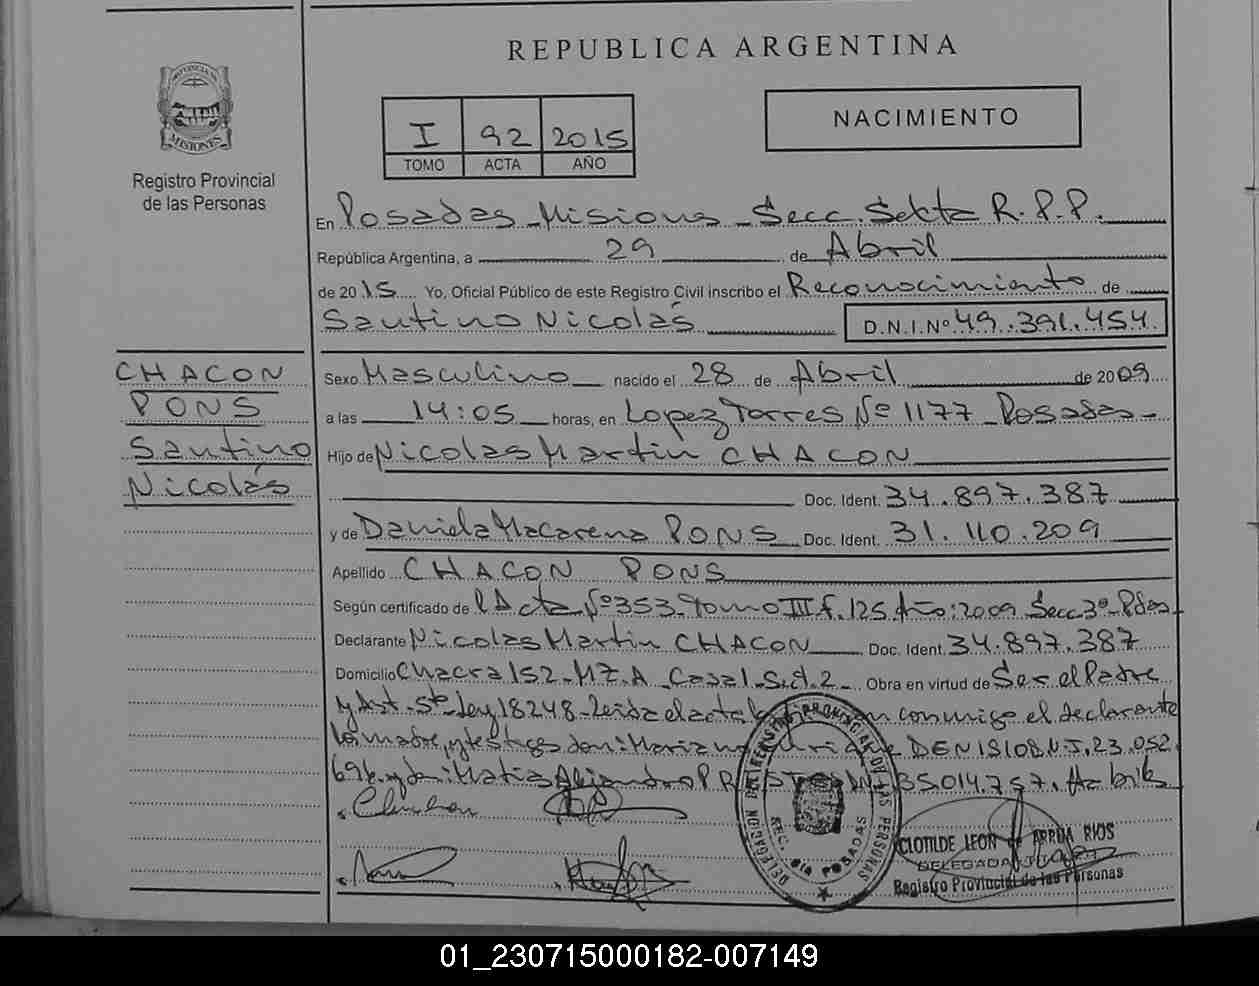 REPUBLICA ARGENTINA
PROVINCIA DE
MISIONES
Registro Provincial
de las Personas
I 92 2015
TOMO ACTA AÑO
NACIMIENTO
En Posadas Misiones Secc. Sexta R.P.P.
República Argentina, a 29 de Abril
de 2015 Yo, Oficial Público de este Registro Civil inscribo el Reconocimiento de
Santino Nicolás D.N.I.Nº 49.391.454
CHACON
PONS
Santino
Nicolás
Sexo Masculino nacido el 28 de Abril de 2009
a las 14:05 horas, en Lopez Torres Nº 1177 Posadas
Hijo de Nicolas Martin CHACON
Doc. Ident. 34.897.387
y de Daniela Macarena PONS Doc. Ident. 31.110.209
Apellido CHACON PONS
Según certificado de Acta Nº 353 Tomo III f. 125 Año: 2009 Secc 3ª Pdas
Declarante Nicolas Martin CHACON Doc. Ident. 34.897.387
Domicilio Chacra 152 MZ. A Casa 1 Sict. 2 Obra en virtud de Ser el Padre
y Art. 5to Ley 18248 Leida el acta conmigo el declarante
la madre, y testigos don: Mariano D.N.I. 23.052.
696 y don: Matias Alejandro 35.014.757.
DELEGACION REGISTRO PROVINCIAL DE LAS PERSONAS
SEC. 6ta POSADAS
CLOTILDE LEON ARRUA RIOS
DELEGADA
Registro Provincial de las Personas
01_230715000182-007149